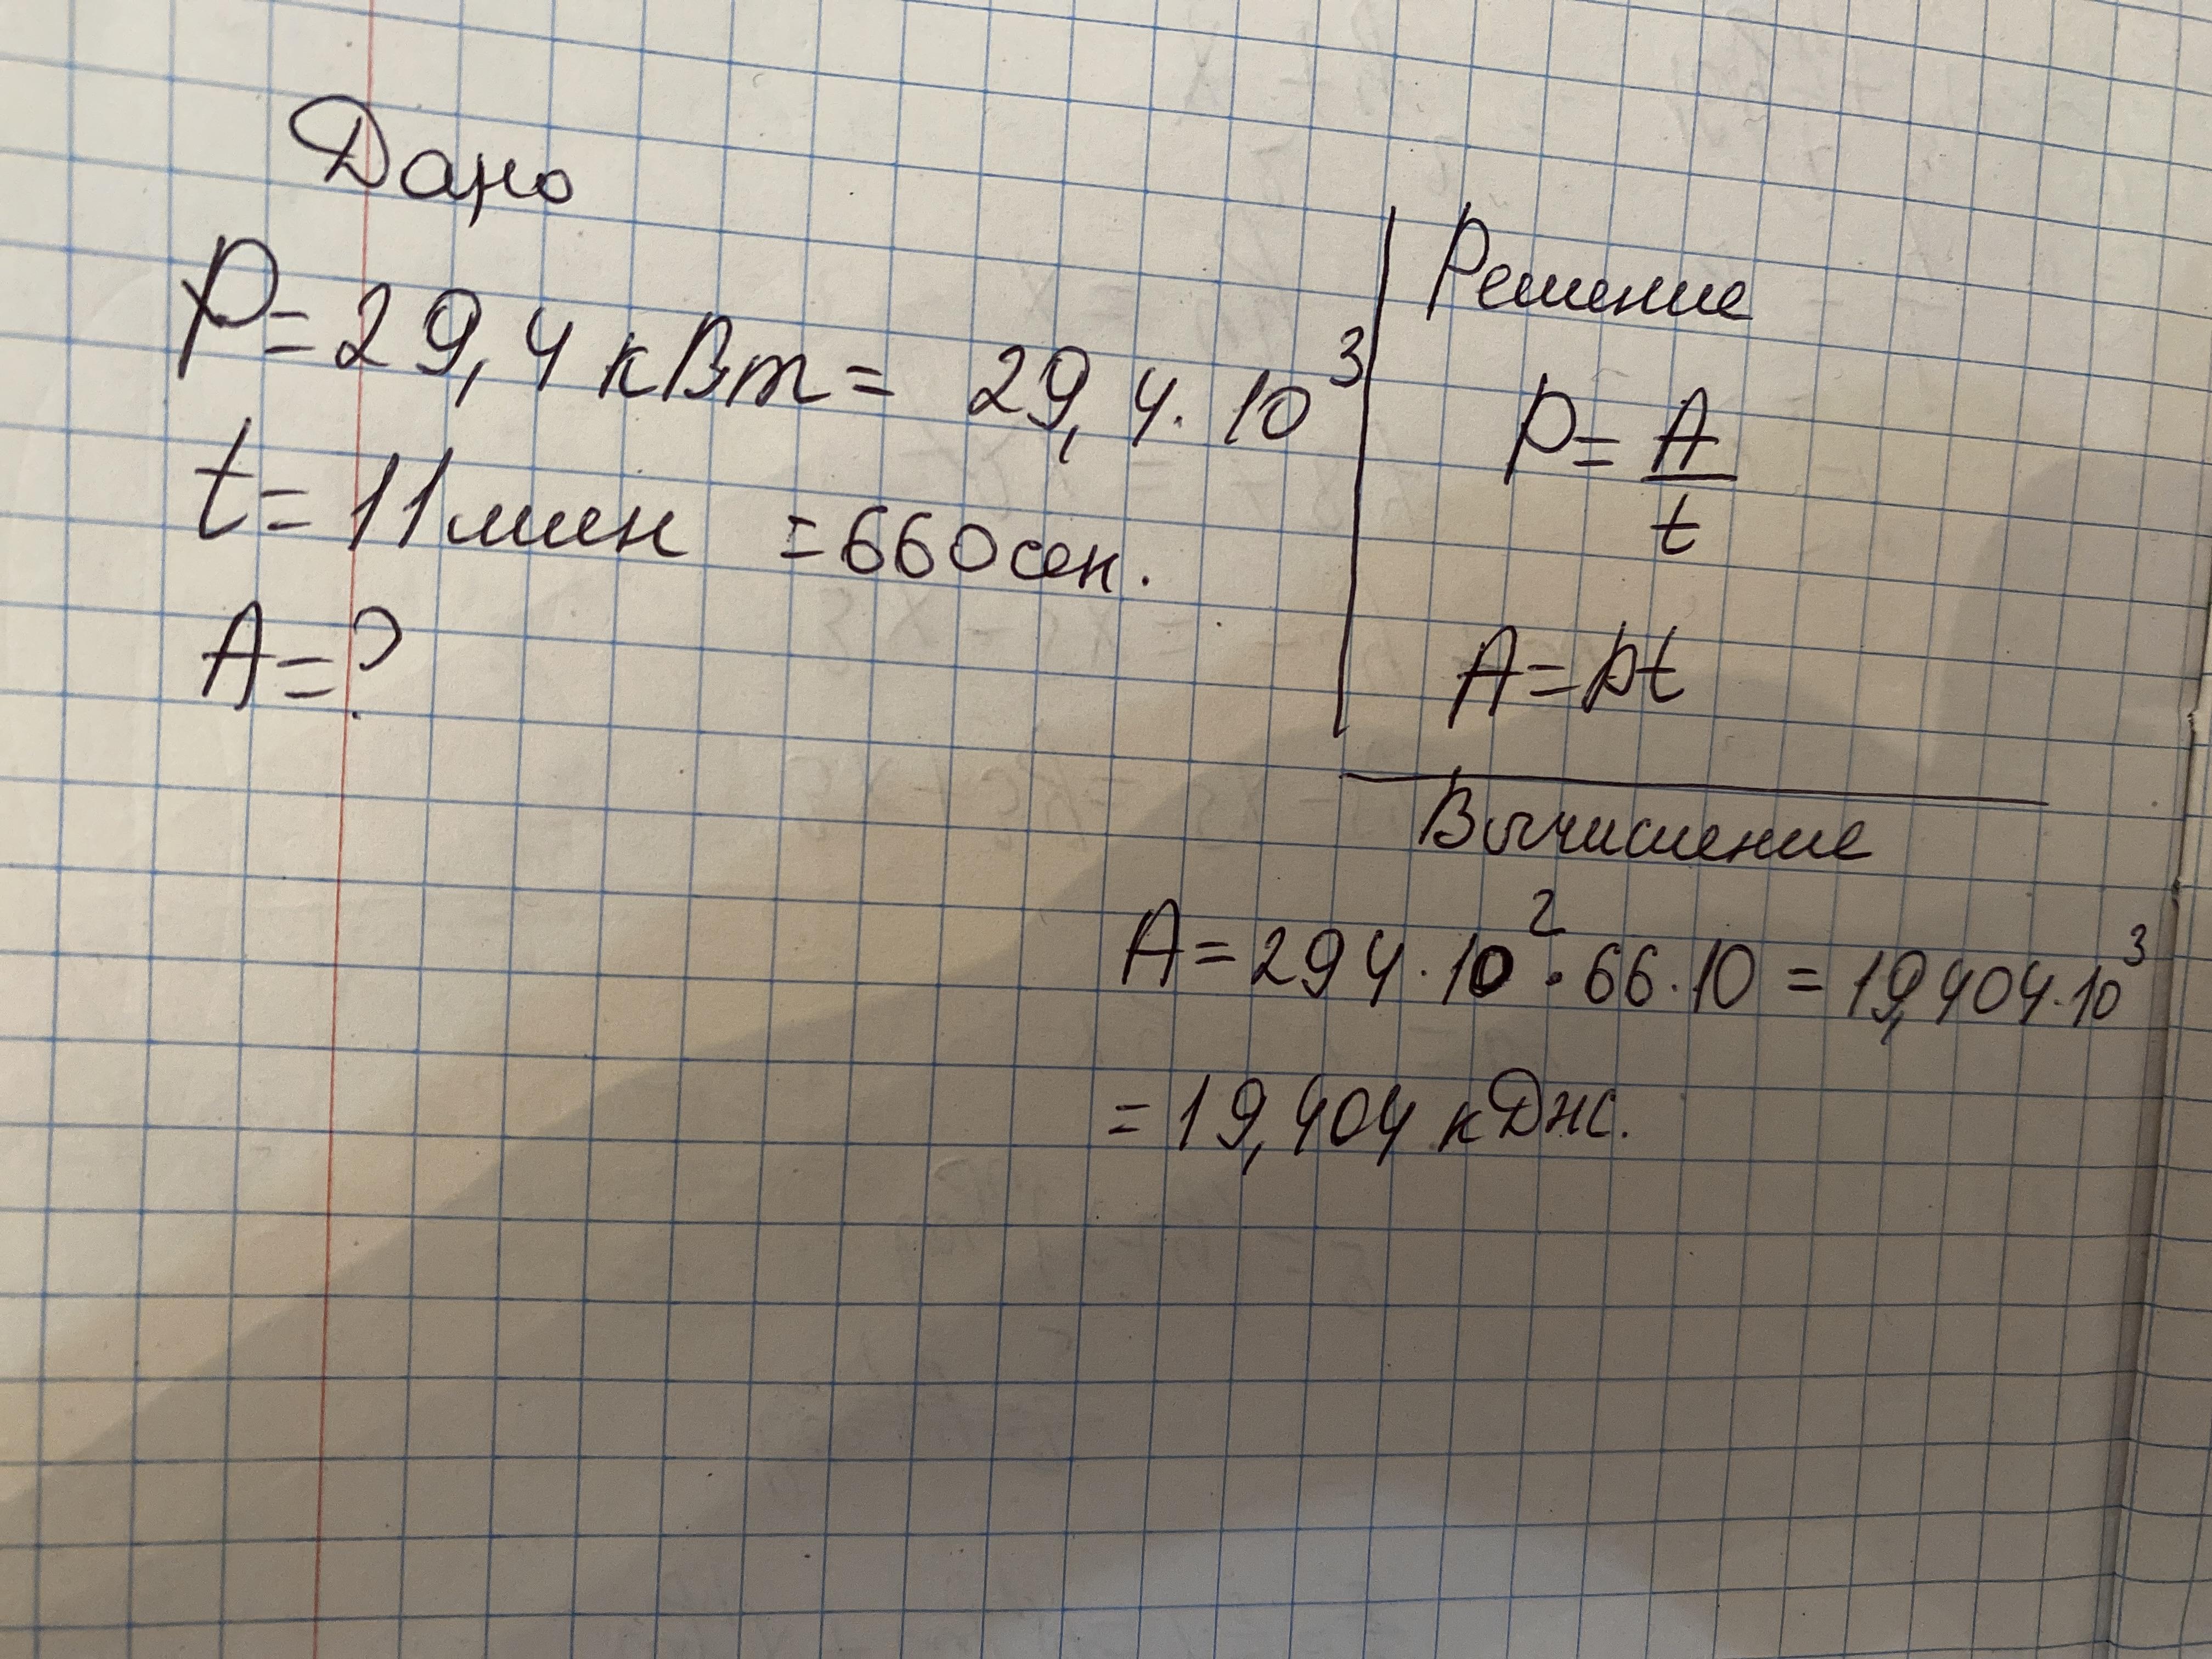 Дано
P = 29,4 кВт = 29,4 · 10³
t = 11 мин = 660 сек.
A = ?
Решение
P = A/t
A = pt
Вычисление
A = 294 · 10² · 66 · 10 = 19,404 · 10³
= 19,404 кДж.